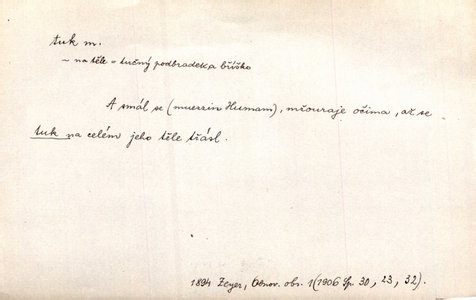 tuk m.
~ na těle = tučný podbradek a bříško
A smál se (muezzin Humam), mžouraje očima, až se
tuk na celém jeho těle třásl.
1894 Zeyer, Obnov. obr. 1 (1906 Sp 30, 23, 32).